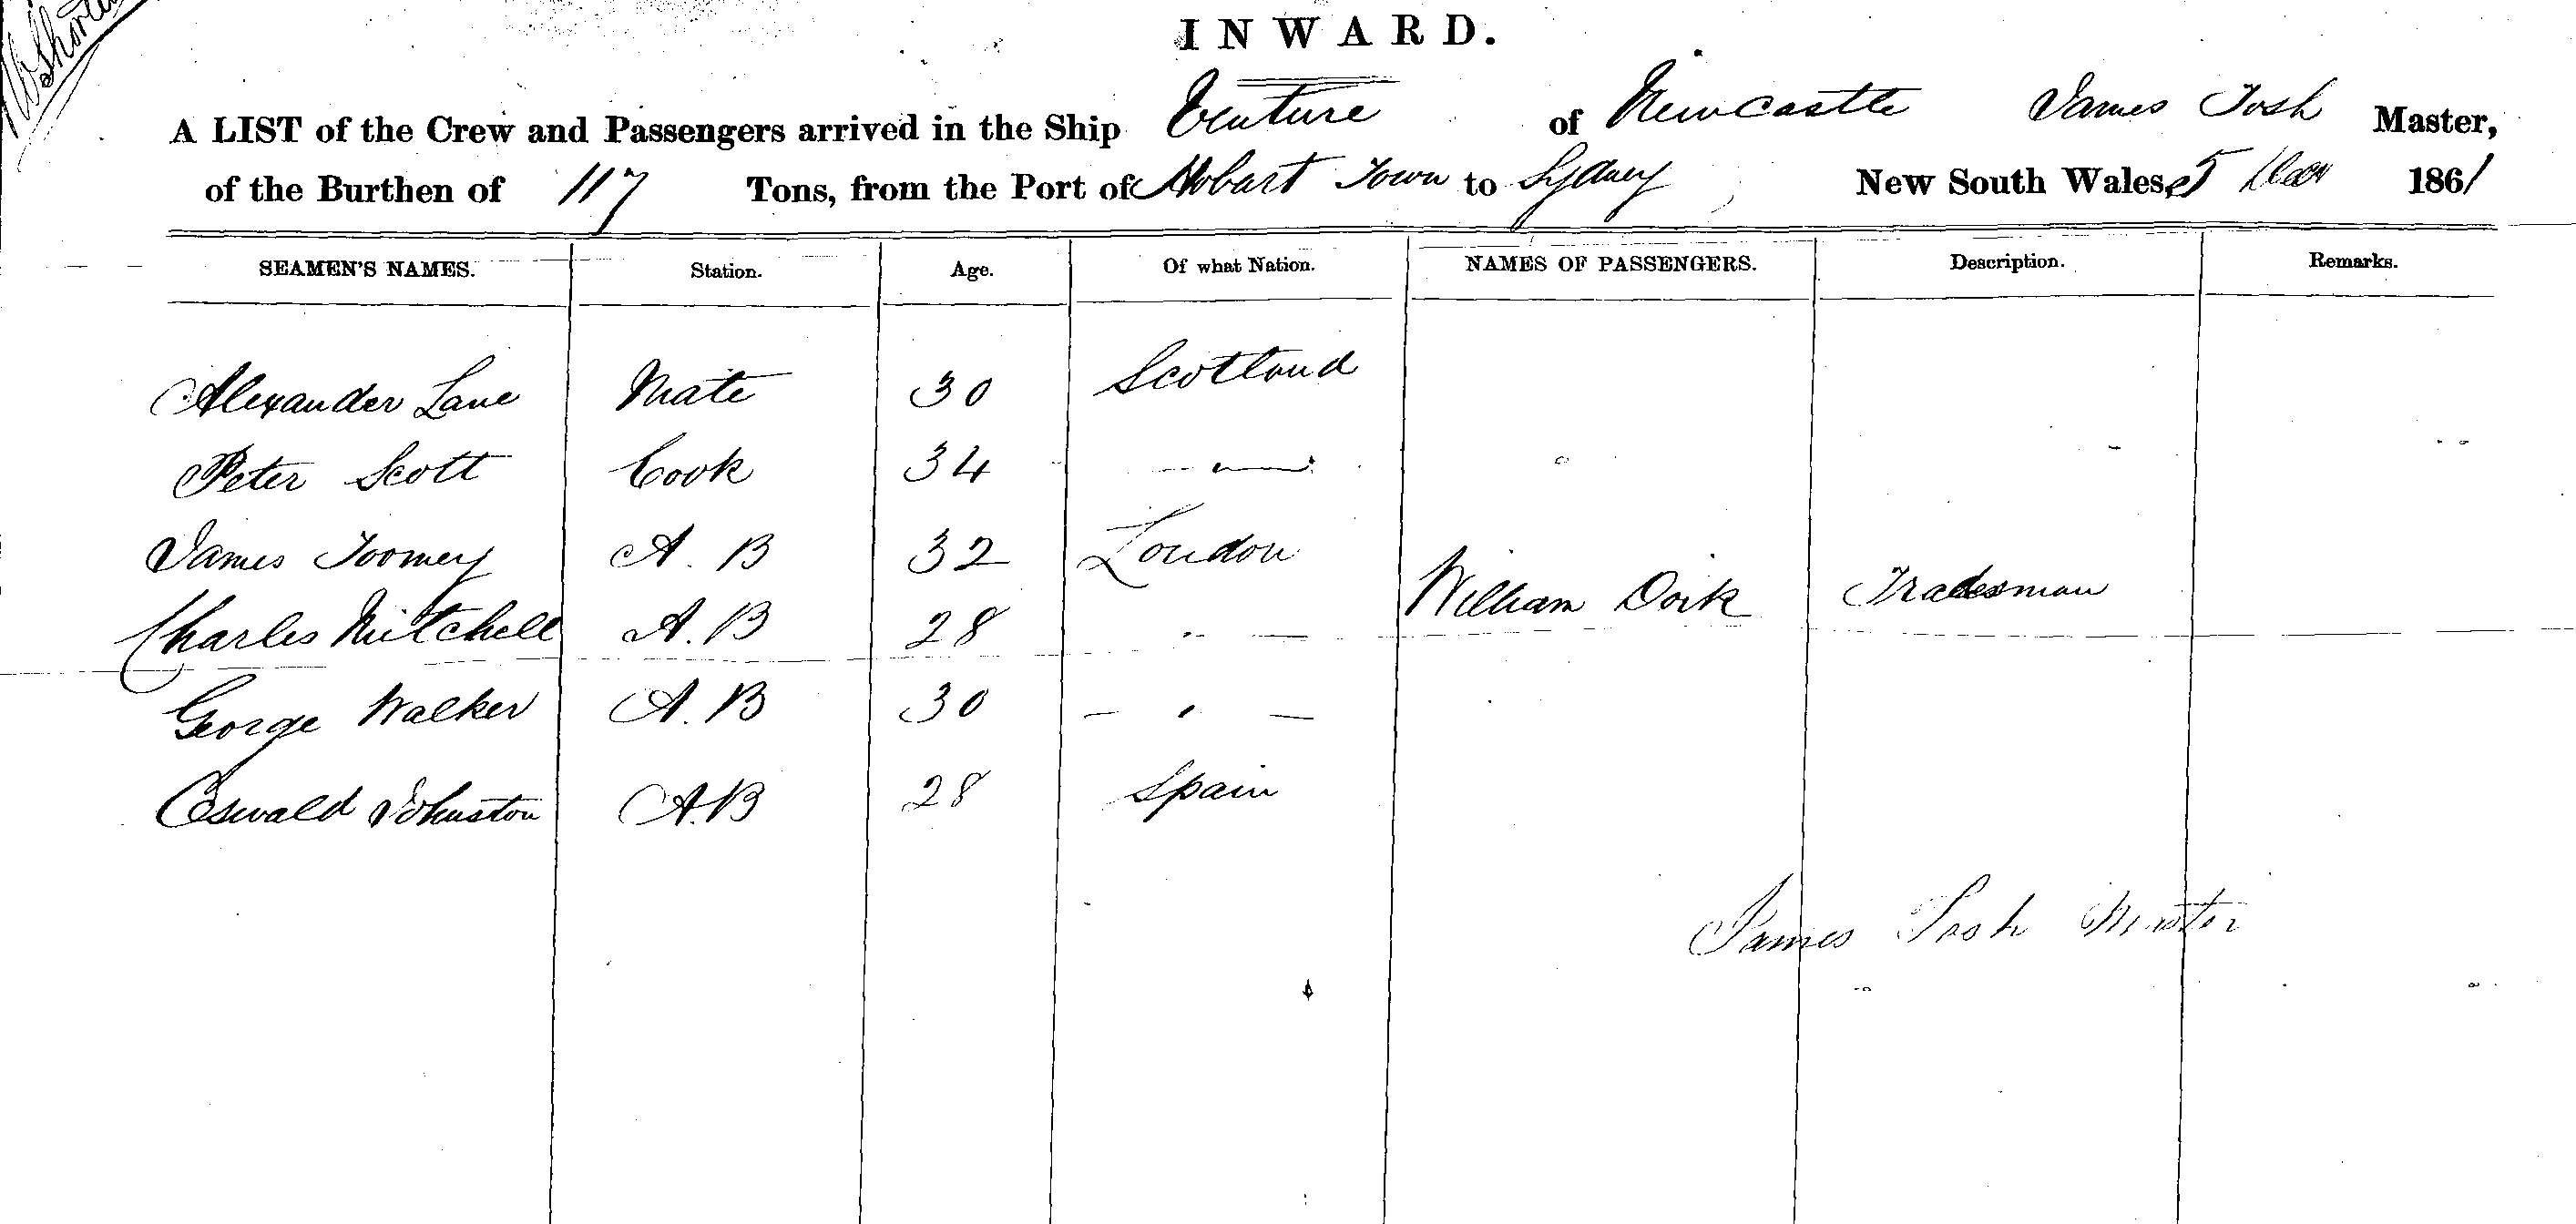 INWARD.
A LIST of the Crew and Passengers arrived in the Ship Venture of Newcastle James Tosh Master,
of the Burthen of 117 Tons, from the Port of Hobart Town to Sydney New South Wales, 5 1861
SEAMEN'S NAMES. Station. Age. Of what Nation. NAMES OF PASSENGERS. Description. Remarks.
Alexander Lane Mate 30 Scotland
Peter Scott Cook 34 —
James Toomey A. B 32 London
Charles Mitchell A. B 28 " —
William Doik Tradesman
George Walker A. B 30 — " —
Oswald Johnston A.B 28 Spain
James Tosh Master